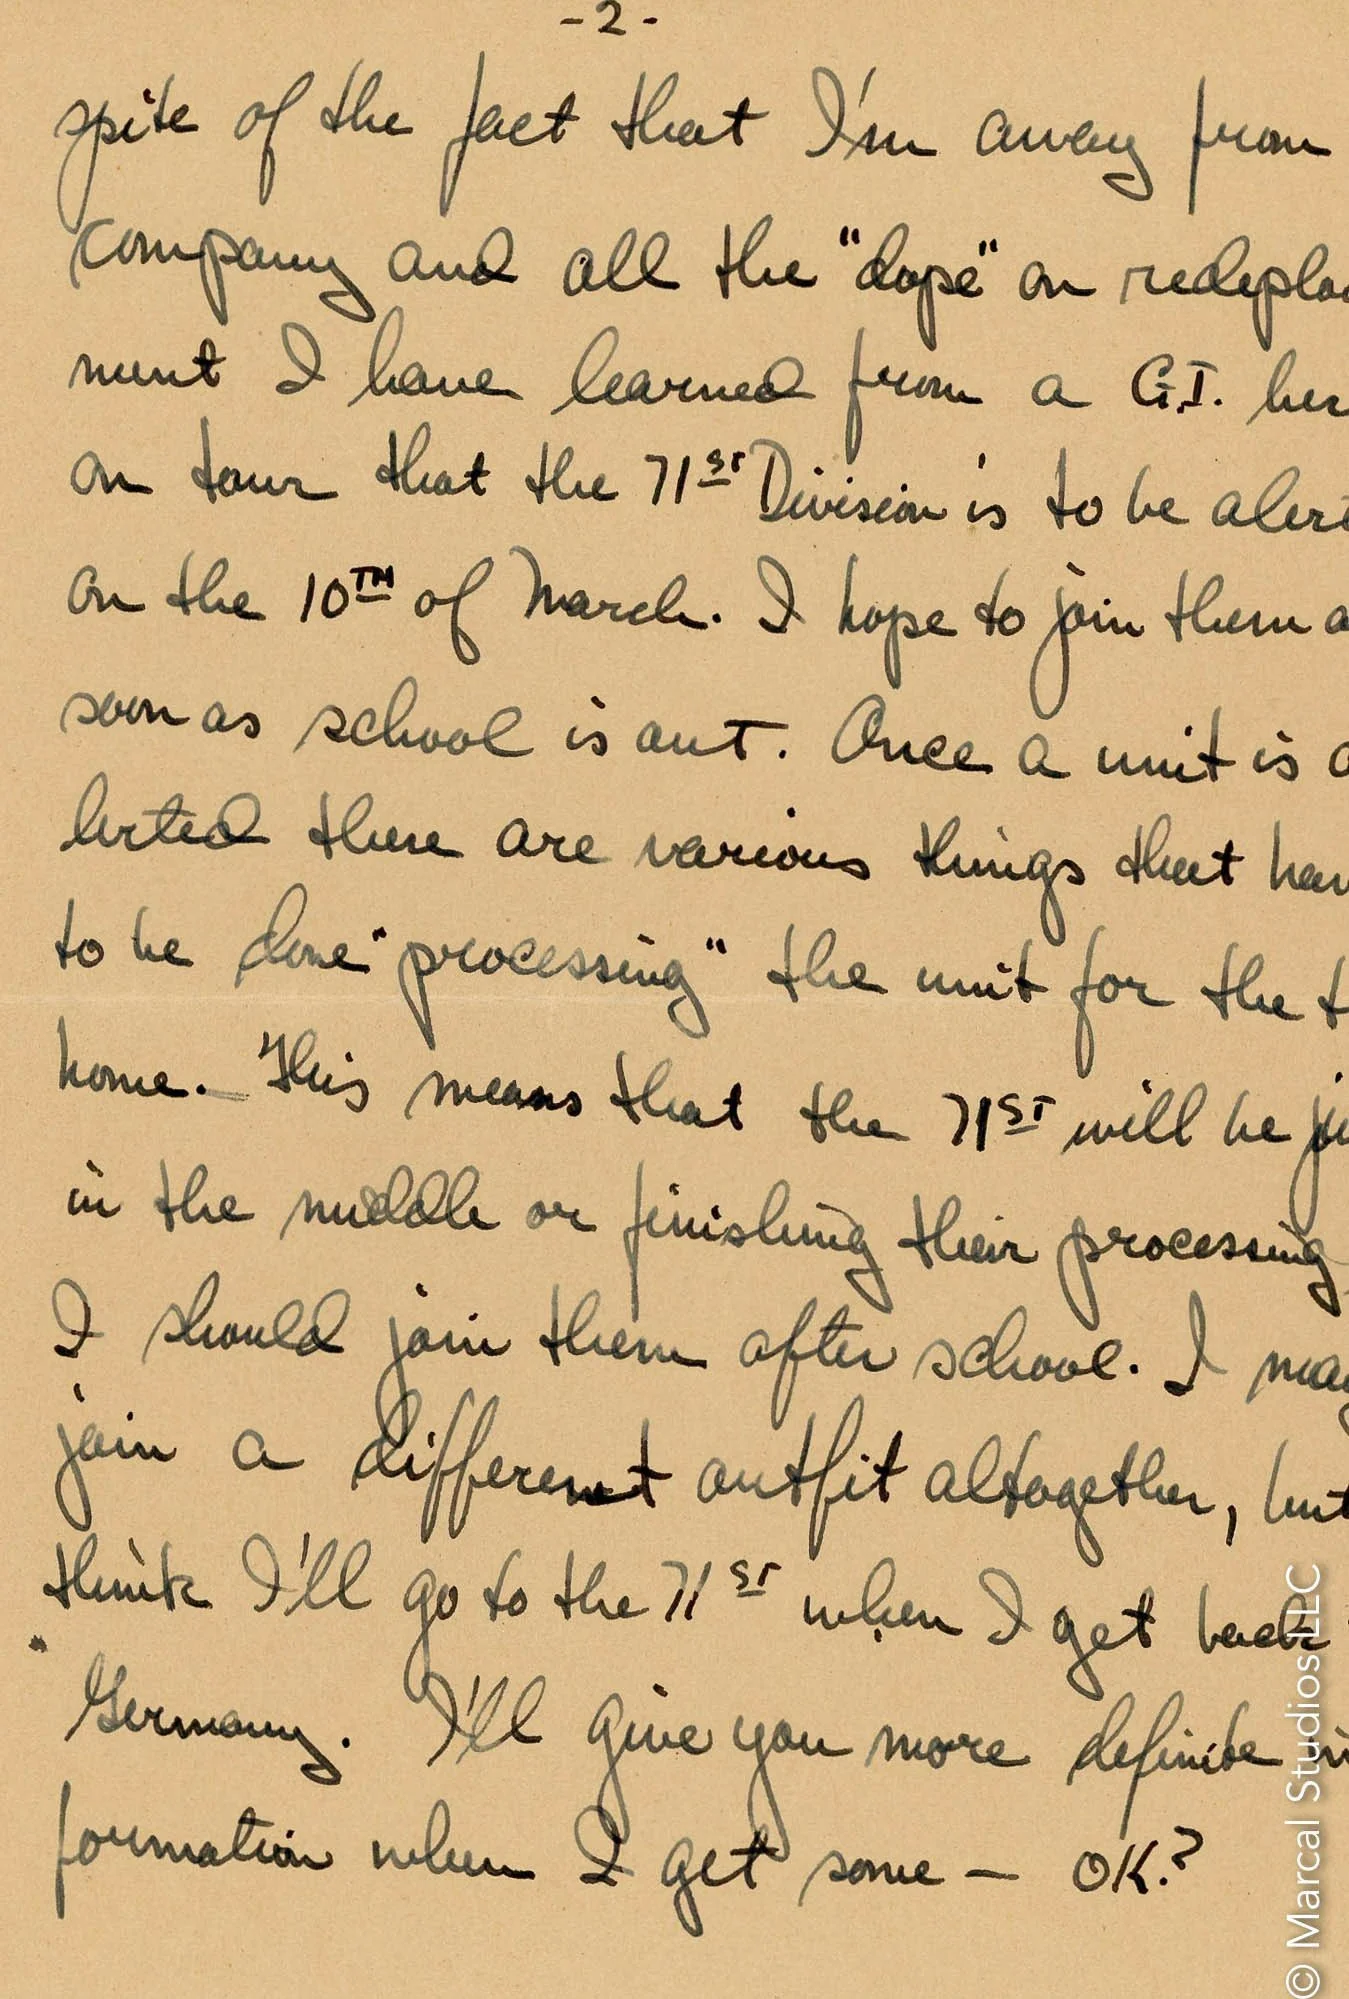 -2-
spite of the fact that I'm away from
company and all the "dope" on redeplo
ment I have learned from a G.I. her
on tour that the 71ST Division is to be alert
on the 10TH of March. I hope to join them a
soon as school is out. Once a unit is a
lerted there are various things that hav
to be done "processing" the unit for the t
home. – This means that the 71ST will be ju
in the middle or finishing their processing
I should join them after school. I may
join a different outfit altogether, but
think I'll go to the 71ST when I get back
Germany. I'll give you more definite in
formation when I get some — OK.?
© Marcal Studios LLC